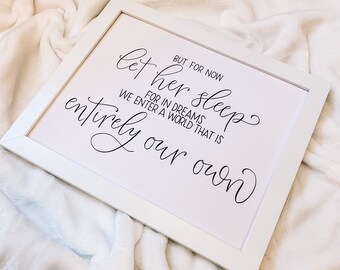 BUT FOR NOW
let her sleep
FOR IN DREAMS
WE ENTER A WORLD THAT IS
entirely our own